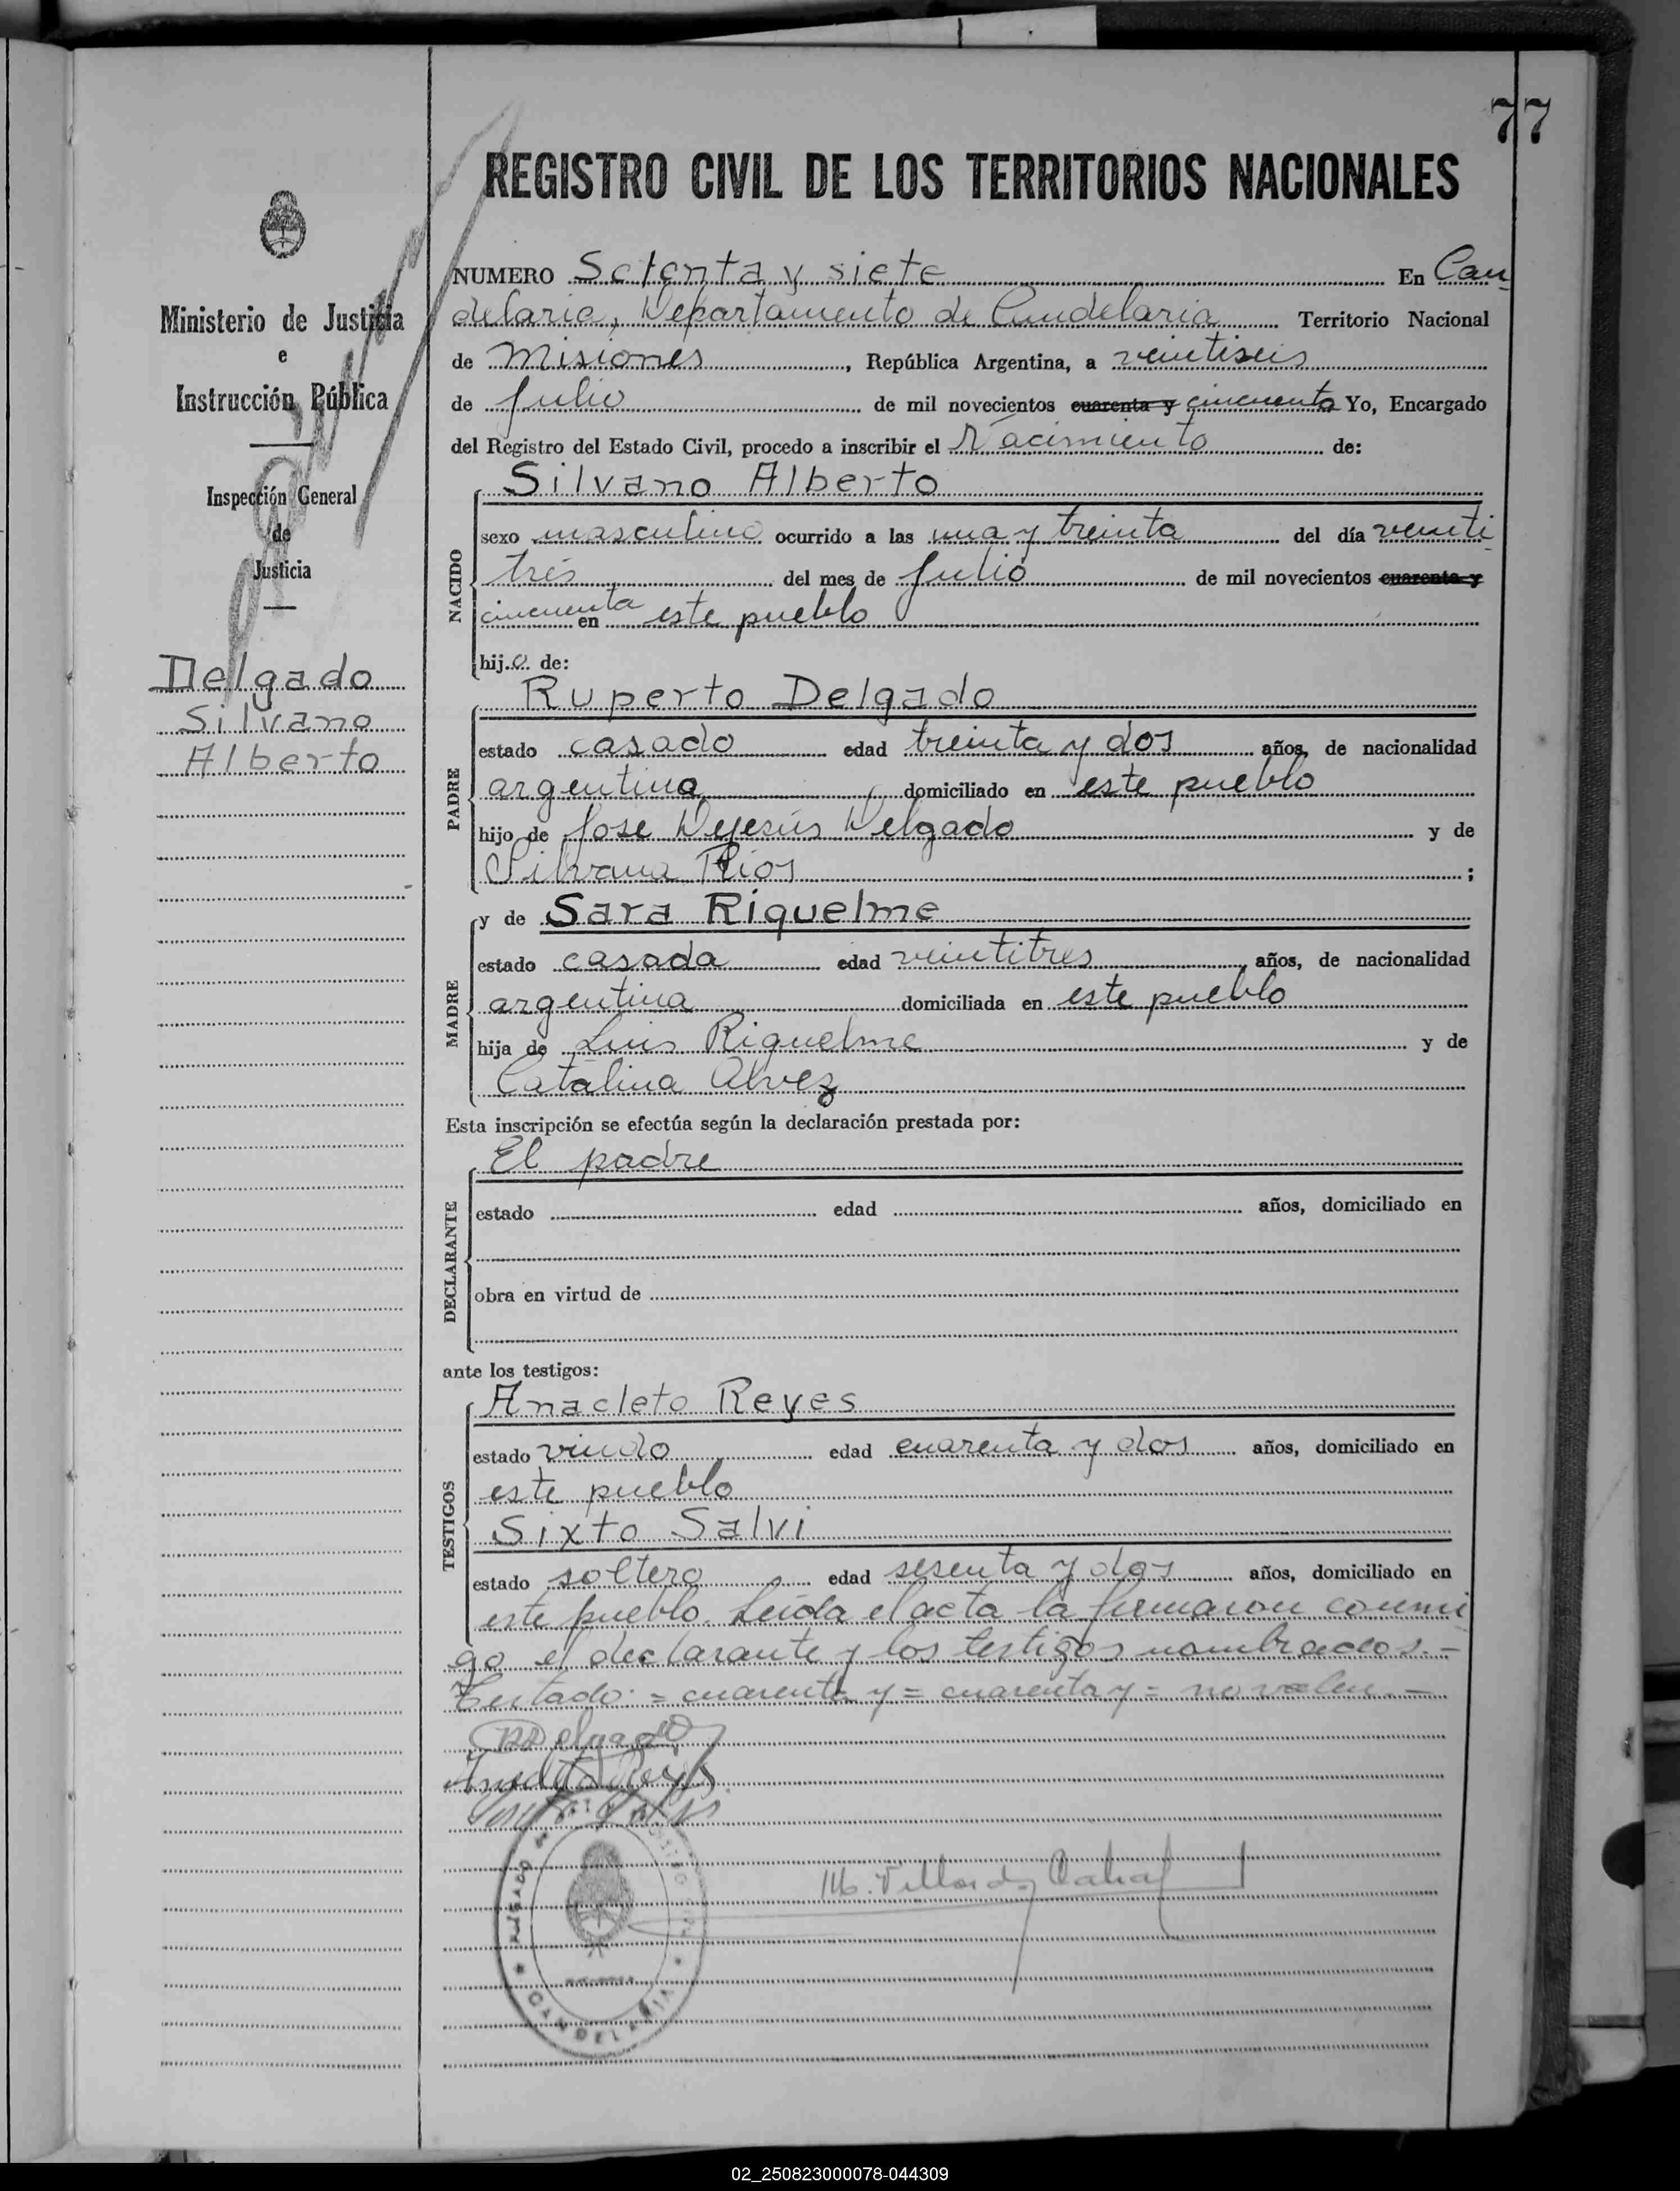 77
REGISTRO CIVIL DE LOS TERRITORIOS NACIONALES
Ministerio de Justicia
e
Instrucción Pública
Inspección General
de
Justicia
Delgado
Silvano
Alberto
NUMERO Setenta y siete En Can
delaria, Departamento de Candelaria Territorio Nacional
de Misiones, República Argentina, a veintiseis
de Julio de mil novecientos cuarenta y cincuenta Yo, Encargado
del Registro del Estado Civil, procedo a inscribir el Nacimiento de:
NACIDO
Silvano Alberto
sexo masculino ocurrido a las una y treinta del día veinti
trés del mes de Julio de mil novecientos cuarenta y
cincuenta en este pueblo
hijo de:
PADRE
Ruperto Delgado
estado casado edad treinta y dos años, de nacionalidad
argentina domiciliado en este pueblo
hijo de Jose Dejesús Delgado y de
Silvana Rios ;
MADRE
y de Sara Riquelme
estado casada edad veintitres años, de nacionalidad
argentina domiciliada en este pueblo
hija de Luis Riquelme y de
Catalina Alvez
Esta inscripción se efectúa según la declaración prestada por:
DECLARANTE
El padre
estado edad años, domiciliado en
obra en virtud de
ante los testigos:
TESTIGOS
Anacleto Reyes
estado viudo edad cuarenta y dos años, domiciliado en
este pueblo
Sixto Salvi
estado soltero edad sesenta y dos años, domiciliado en
este pueblo. Leida el acta la firmaron conmi
go el declarante y los testigos nombrados.-
Testado: = cuarenta y = cuarenta y = no valen.-
RDelgado
Anacleto Reyes
CANDELARIA
02_250823000078-044309